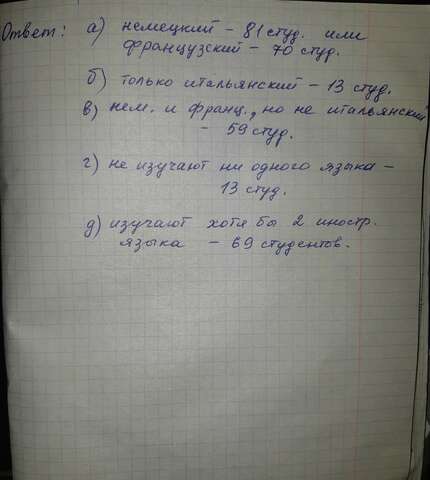 Ответ: а) немецкий - 81 студ. или
французский - 70 студ.
б) только итальянский - 13 студ.
в) нем. и франц., но не итальянский
- 59 студ.
г) не изучают ни одного языка -
13 студ.
д) изучают хотя бы 2 иностр.
языка - 69 студентов.